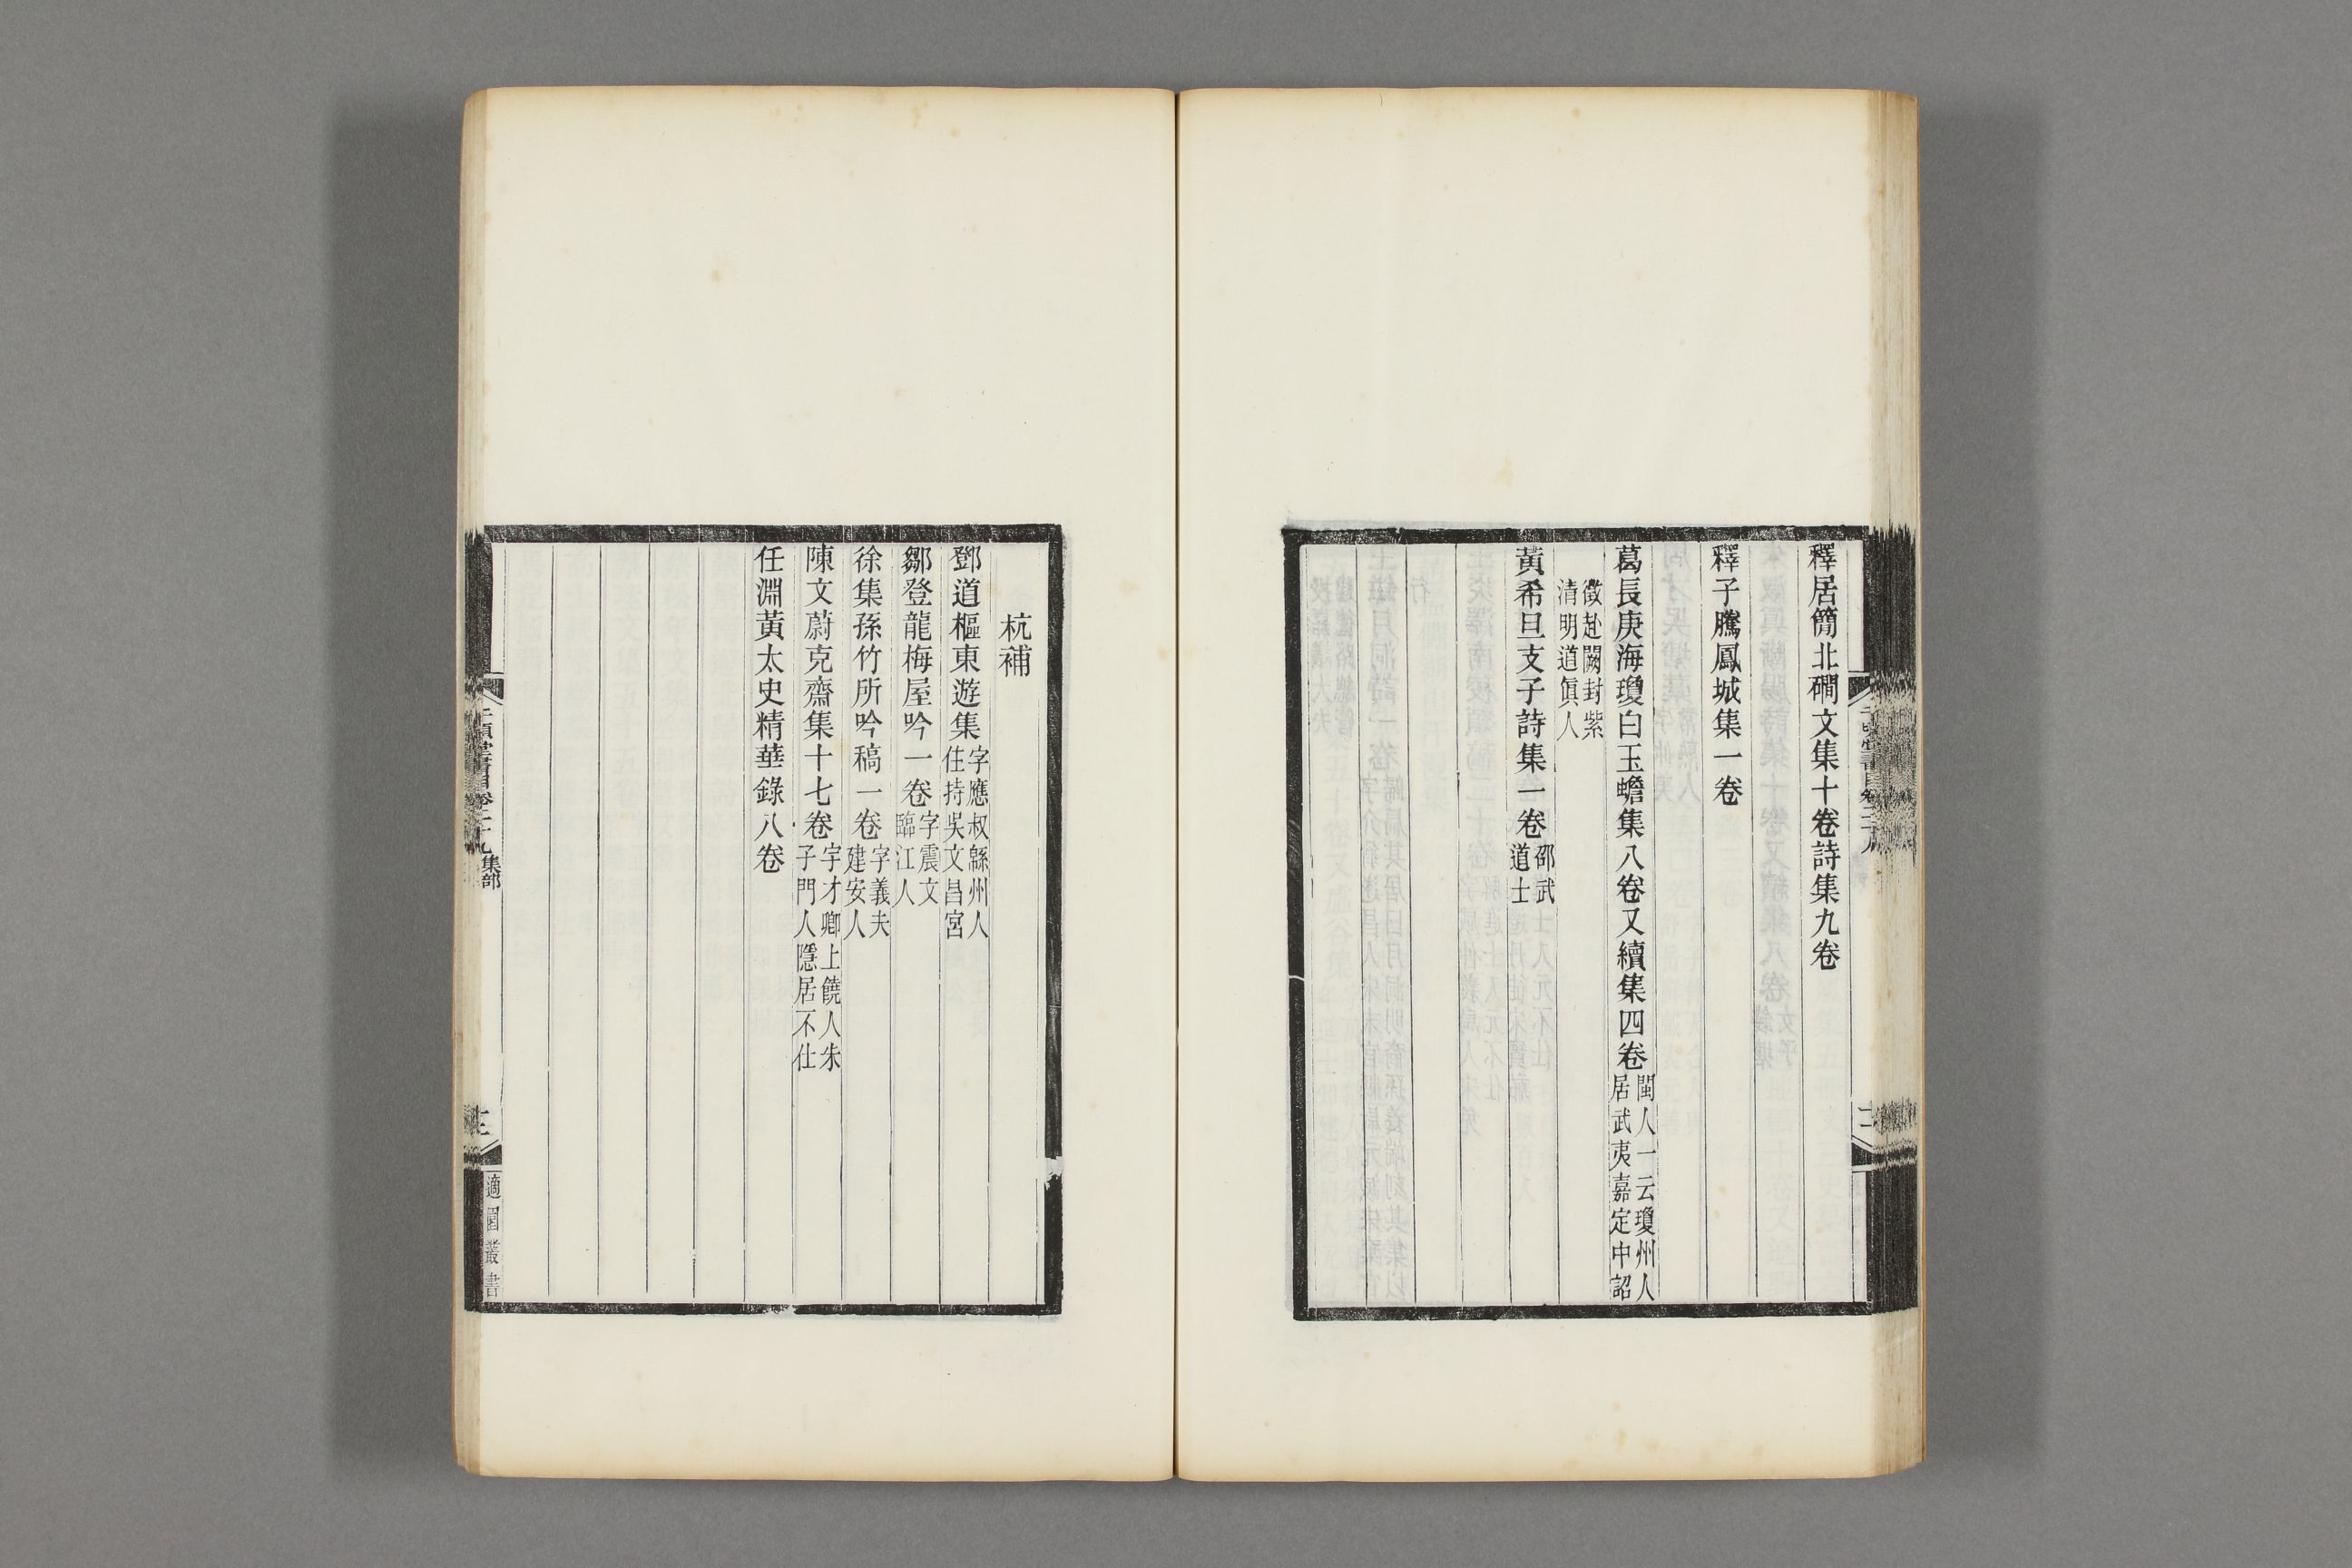 釋居簡北磵文集十卷詩集九卷
釋子騰鳳城集一卷
葛長庚海瓊白玉蟾集八卷又續集四卷閩人一云瓊州人居武夷嘉定中詔
徵赴闕封紫清明道眞人
黃希旦支子詩集一卷邵武道士
杭補
鄧道樞東遊集字應叔緜州人住持吳文昌宮
鄒登龍梅屋吟一卷字震文臨江人
徐集孫竹所吟稿一卷字義夫建安人
陳文蔚克齋集十七卷字才卿上饒人朱子門人隱居不仕
任淵黃太史精華錄八卷
千頃堂書目卷二十九 集部
適園叢書